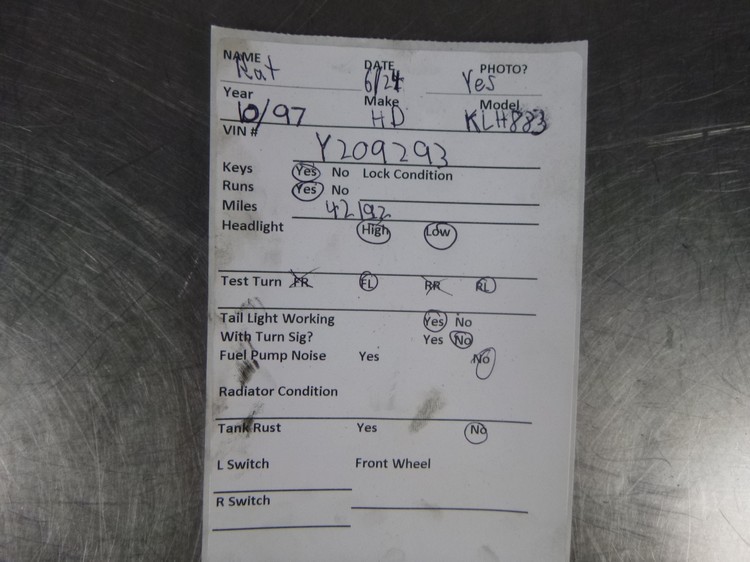 NAME DATE PHOTO?
Rat 6/24 Yes
Year Make Model
10/97 HD XLH883
VIN #
Y209293
Keys Yes No Lock Condition
Runs Yes No
Miles 42192
Headlight High Low
Test Turn FR FL RR RL
Tail Light Working Yes No
With Turn Sig? Yes No
Fuel Pump Noise Yes No
Radiator Condition
Tank Rust Yes No
L Switch Front Wheel
R Switch